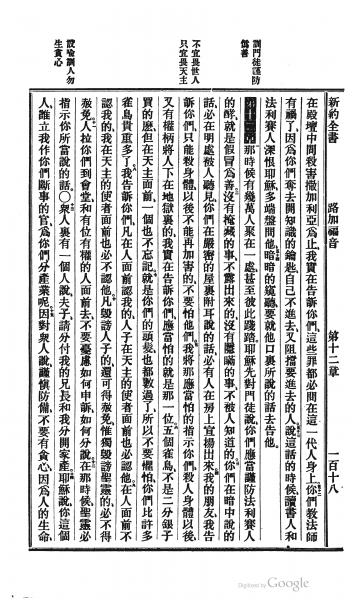 新約全書 路加福音 第十二章 一百十八
在殿壇中間殺害撒加利亞爲止我實在告訴你們這些罪都必問在這一代人身上你們教法師
有禍了因爲你們奪去開知識的鑰匙自己不進去又阻擋要進去的人說這話的時候讀書人和
法利賽人深恨耶穌多端盤問他暗暗的窺聽要就他口裏所說的話去告他
訓門徒謹防
僞善
第十二章 那時候有幾萬人聚在一處甚至彼此踐踏耶穌先對門徒說你們應當謹防法利賽人
的酵就是假冒爲善沒有掩藏的事不露出來的沒有隱瞞的事不被人知道的你們在暗中說的
話必在明處被人聽見你們在嚴密的屋裏附耳說的話必有人在房上宣揚出來我的朋友我告
不宜畏世人
只宜畏天主
訴你們只能殺身體以後不能再加害的不要怕他們我將那應當怕的指示你們殺人身體以後
又有權柄將人下在地獄裏的我實在告訴你們應當怕的就是那一位五個雀鳥不是二分銀子
買的麼但在天主面前一個也不忘記就是你們的頭髮也都數過了所以不要懼怕你們比許多
雀鳥貴重多了我告訴你們凡在人面前認我的人子在天主的使者面前也必認他在人面前不
認我的我在天主的使者面前也必不認他凡毀謗人子的還可得赦免惟獨毀謗聖靈的必不得
赦免人拉你們到會堂和有位有權的人面前去不要憂慮如何申訴如何分說在那時候聖靈必
設喻訓人勿
生貪心
指示你所當說的話〇衆人裏有一個人說夫子請分付我的兄長和我分開家產耶穌說你這個
人誰立我作你們斷事的官爲你們分產業呢因對衆人說謹愼防備不要有貪心因爲人的生命
Digitized by Google